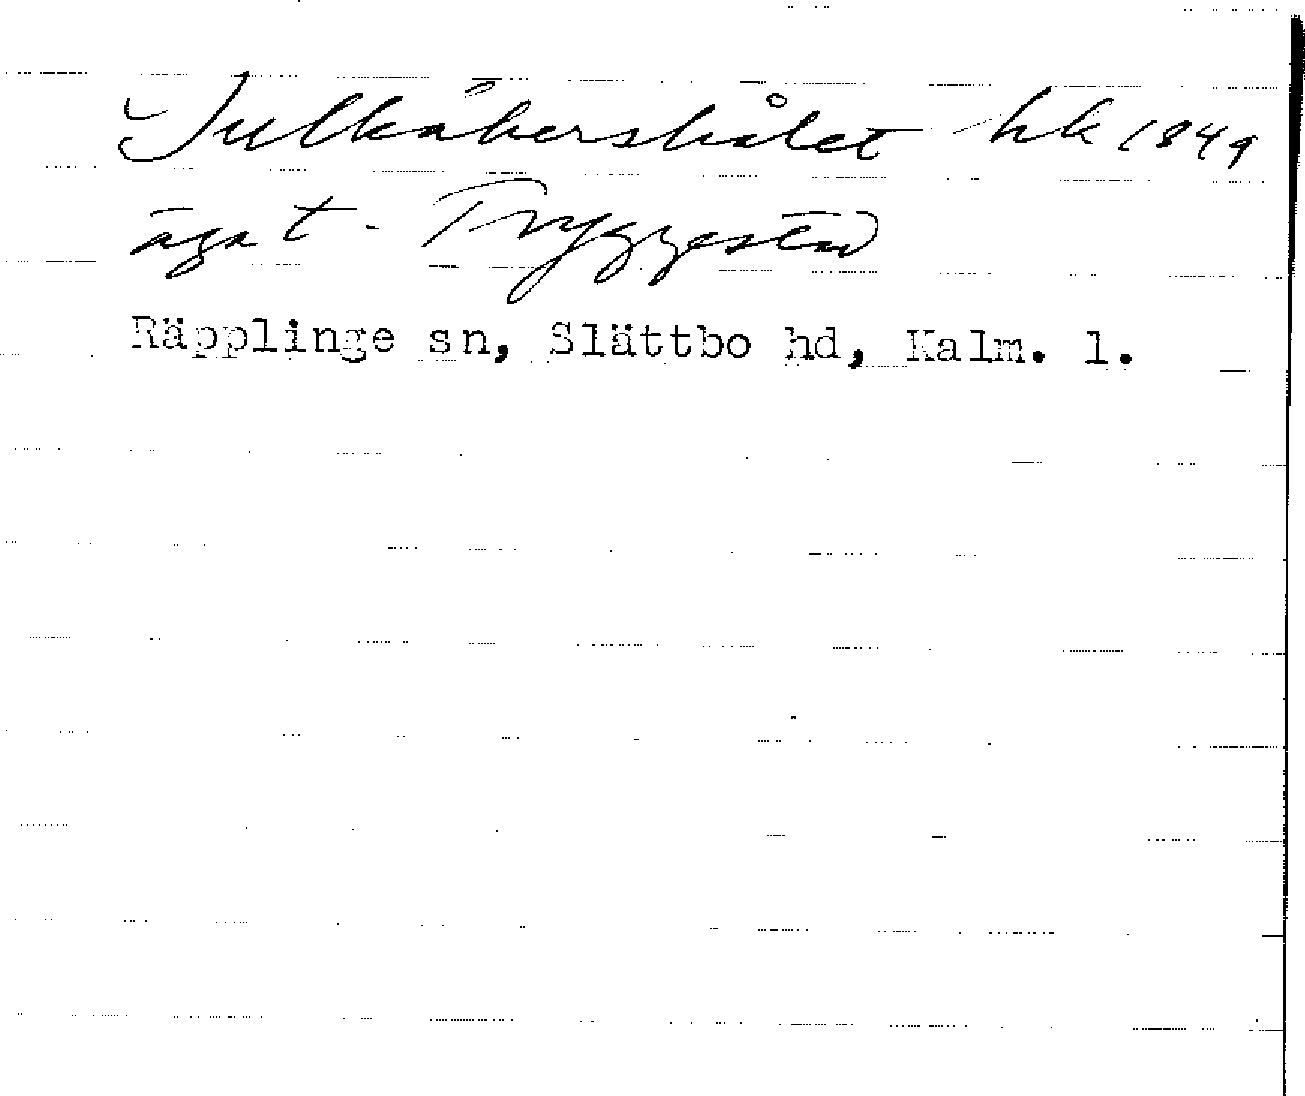 Julkåhershålet hk 1849
äga t. Tryggestad
Räpplinge sn, Slättbo hd, Kalm. l.